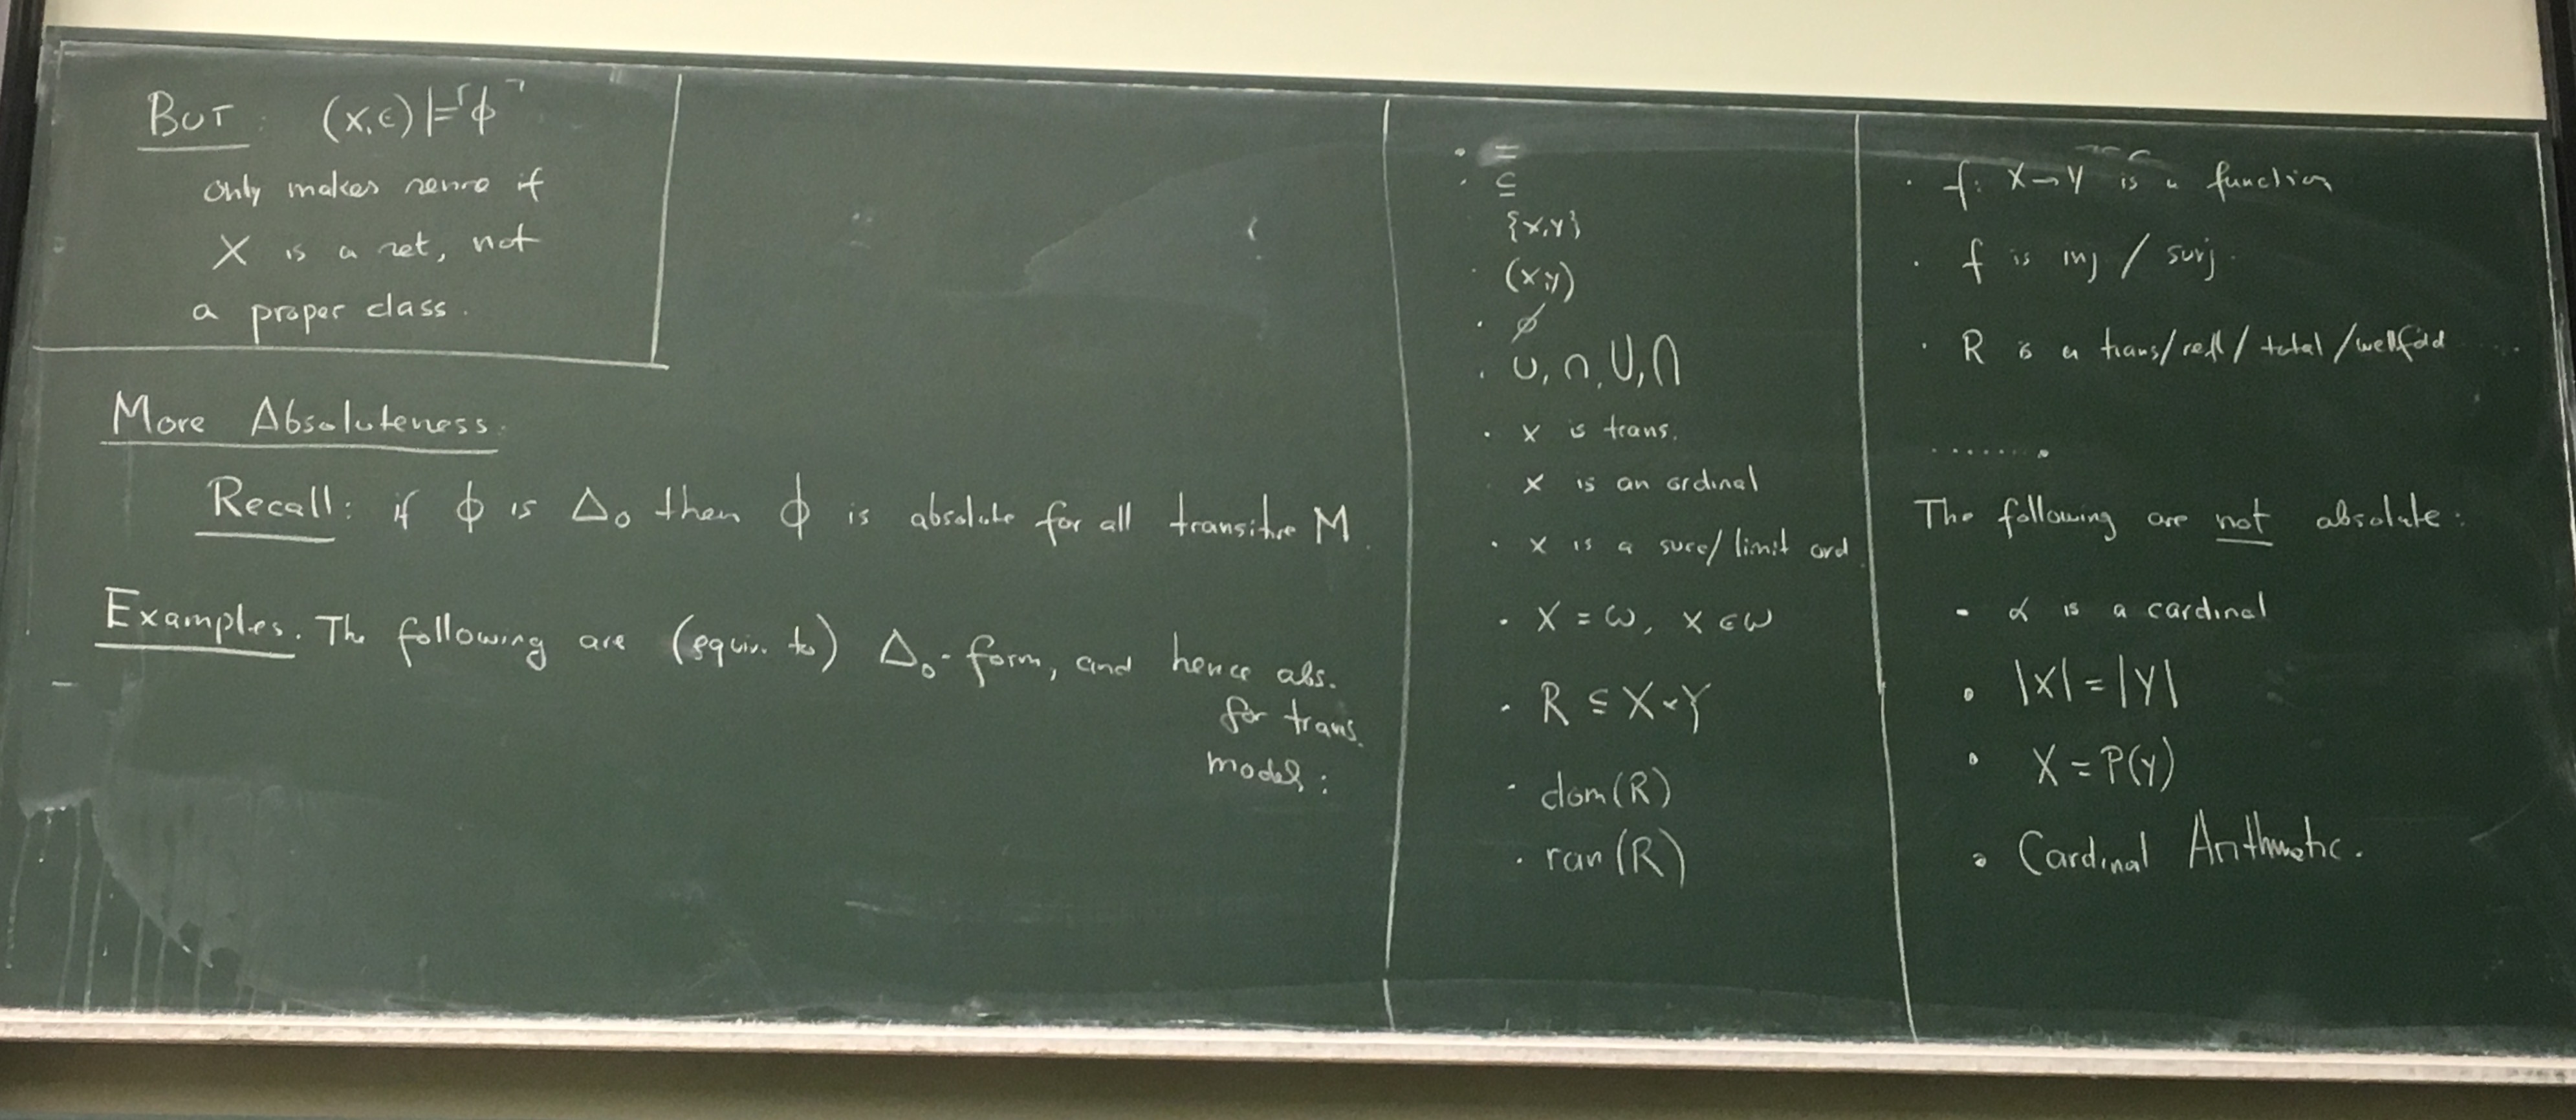 BUT: (X,∈) ⊨ ⌜ϕ⌝
only makes sense if
X is a set, not
a proper class.
More Absoluteness.
Recall: if ϕ is Δ₀ then ϕ is absolute for all transitive M.
Examples. The following are (equiv. to) Δ₀-form, and hence abs.
for trans.
models:
· =
· ⊆
{x,y}
· (x,y)
· ∅
· ∪, ∩, ⋃, ⋂
· x is trans.
· x is an ordinal
· x is a succ/limit ord.
· X = ω, x ∈ ω
· R ⊆ X×Y
· dom(R)
· ran(R)
· f: X→Y is a function
· f is inj / surj.
· R is a trans/refl/total/wellfdd .....
........
The following are not absolute:
- α is a cardinal
• |X| = |Y|
• X = P(Y)
• Cardinal Arithmetic.